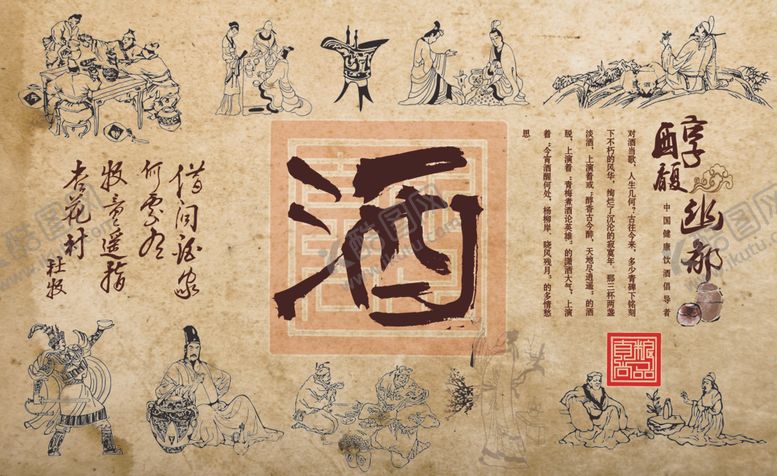 醇馥
幽郁
中国健康饮酒倡导者
对酒当歌，人生几何？古往今来，多少青碑下铭刻
下不朽的风华，绚烂了沉沦的寂寞年，那三杯两盏
淡酒，上演着或“醇香古今醉，天地尽逍遥”的酒
脱，上演着“青梅煮酒论英雄”的潇洒大气，上演
着“今宵酒醒何处，杨柳岸，晓风残月”的多情愁
思
酒
借问酒家
何处有
牧童遥指
杏花村
杜牧